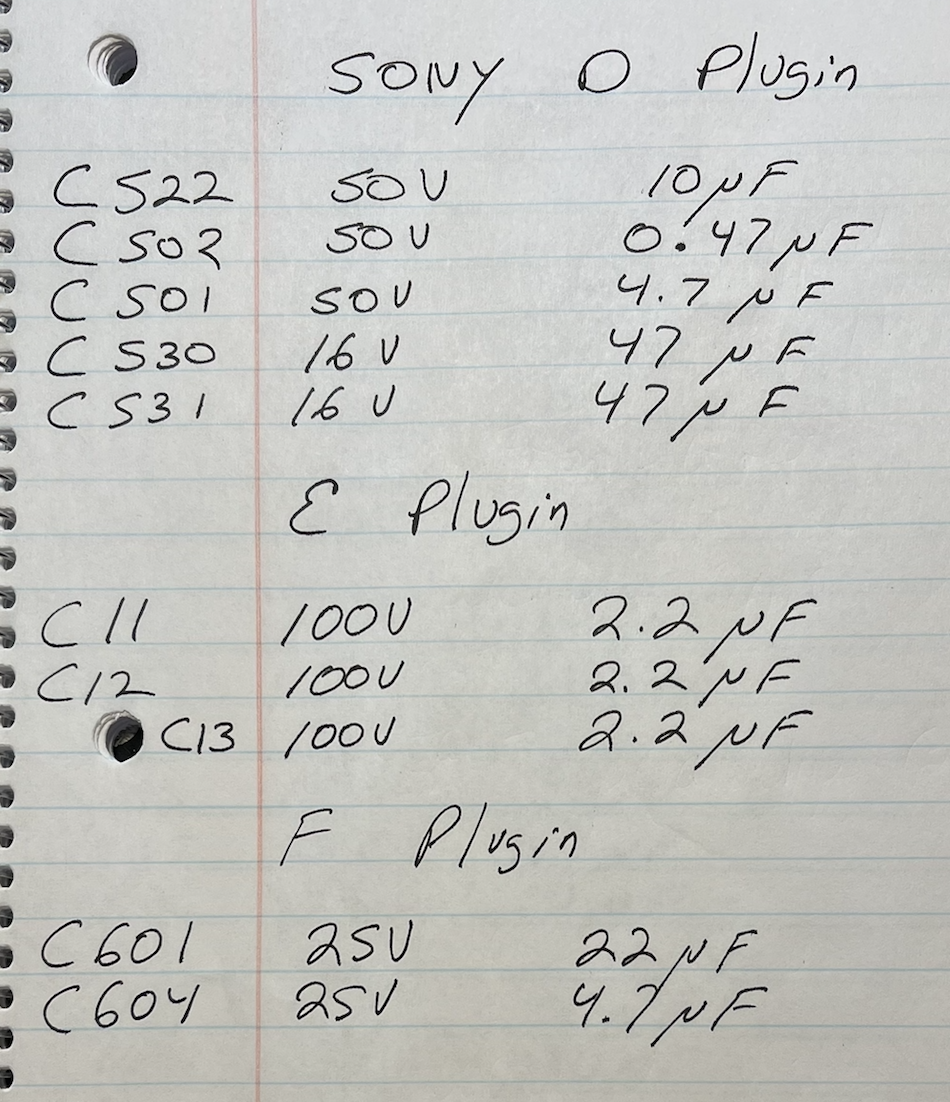 SONY D Plugin
C 522 50V 10µF
C 502 50V 0.47µF
C 501 50V 4.7 µF
C 530 16V 47 µF
C 531 16V 47µF
E Plugin
C11 100V 2.2 µF
C12 100V 2.2 µF
C13 100V 2.2 µF
F Plugin
C601 25V 22µF
C604 25V 4.7µF